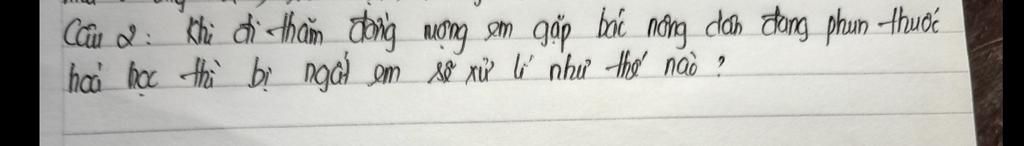 Câu 2: Khi đi thăm đồng ruộng em gặp bác nông dân đang phun thuốc
hoá học thì bị ngất em sẽ xử lí như thế nào ?